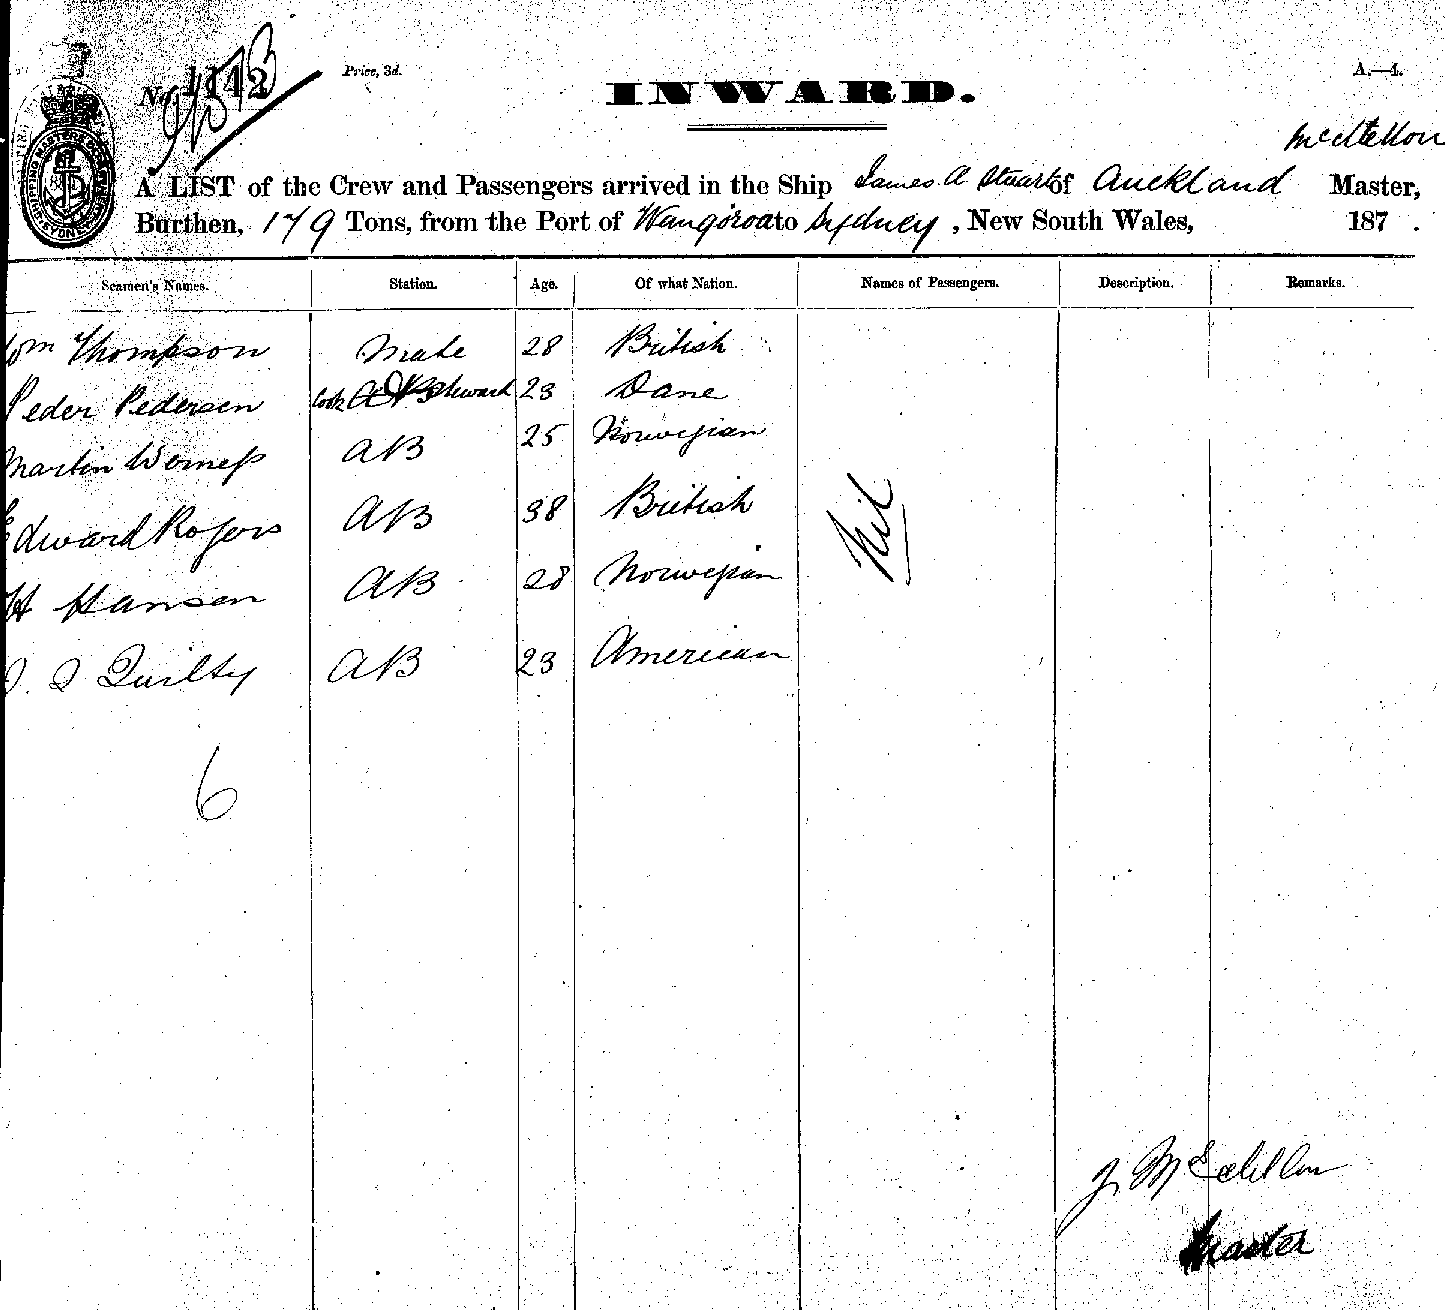 No. 1142 Price, 3d. A.—4.
INWARD.
A LIST of the Crew and Passengers arrived in the Ship James A Stuart of Auckland Master,
Burthen, 179 Tons, from the Port of Wangaroa to Sydney, New South Wales, 187 .
Seamen's Names. Station. Age. Of what Nation. Names of Passengers. Description. Remarks.
Wm Thompson Mate 28 British
Peder Pedersen Cook & Steward 23 Dane
Martin AB 25 Norwegian
Edward Rogers AB 38 British
Nil
H Hansen AB 28 Norwegian
J. J Quilty AB 23 American
6
Master